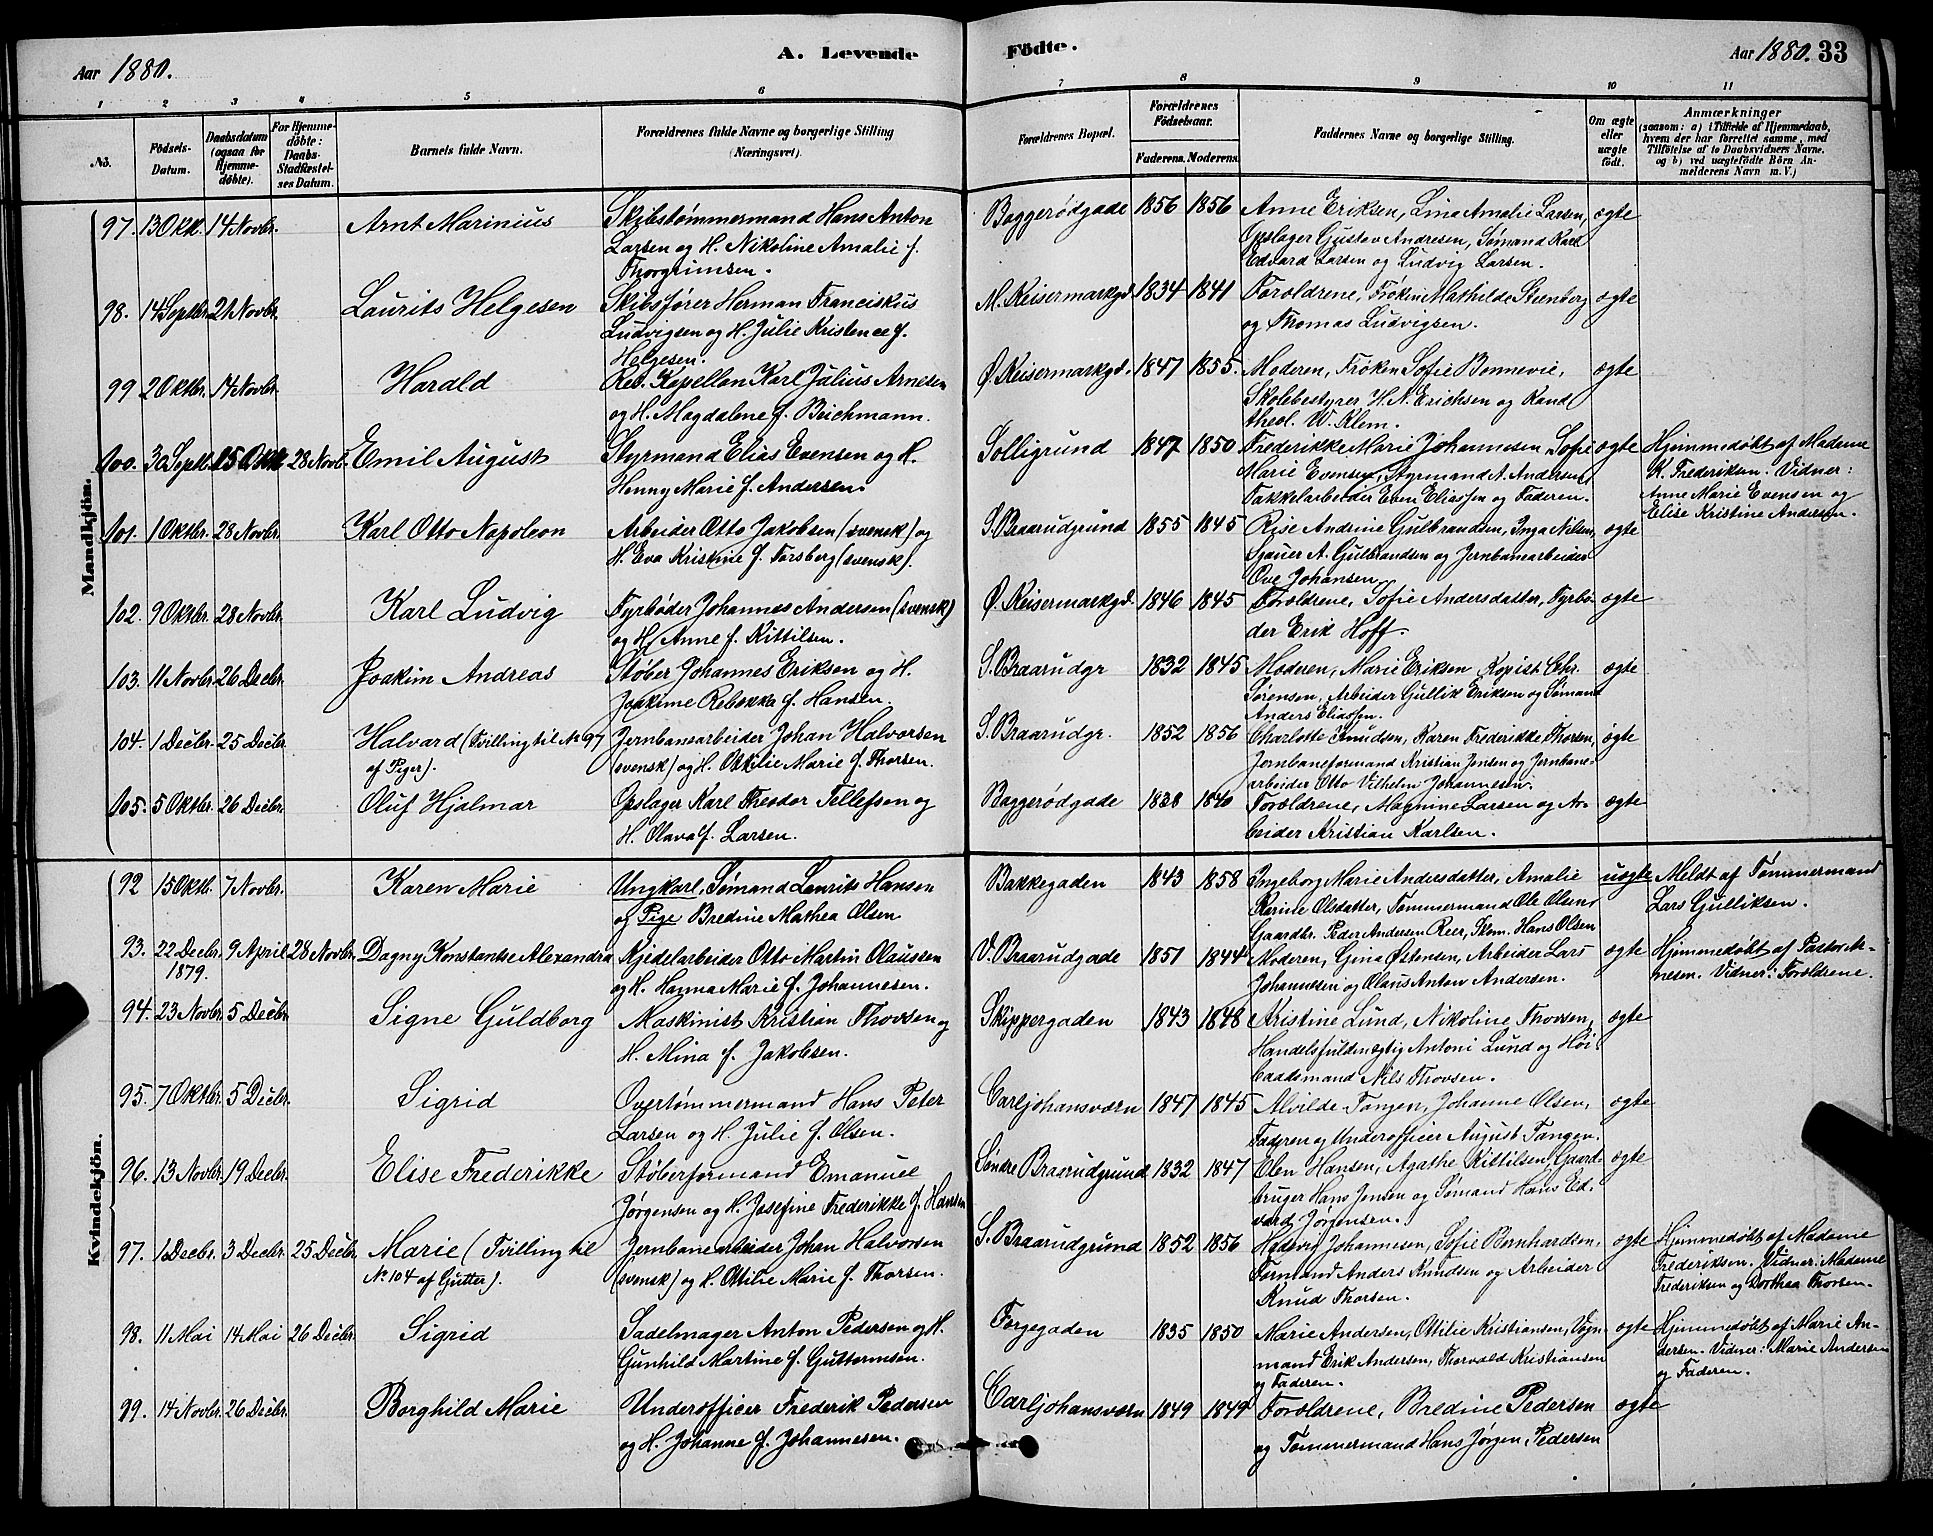 Aar 1880. A. Levende
Födte. Aar 1880. 33
1 2 3 4 5 6 7 8 9 10 11
No. Födsels-Datum. Daabsdatum (ogsaa for Hjemmedöbte). For Hjemmedöbte: Daabs-Stadfæstelses Datum. Barnets fulde Navn. Forældrenes fulde Navne og borgerlige Stilling (Næringsvei). Forældrenes Bopæl. Forældrenes Födselsaar. Faderens. Moderens. Faddernes Navne og borgerlige Stilling. Om ægte eller uægte födt. Anmærkninger (saasom: a) i Tilfælde af Hjemmedaab, hvem der har forrettet samme, med Tilföielse af to Daabsvidners Navne, og b) ved uægtefödte Börn Anmelderens Navn m. V.)
Mandkjön.
97. 13 Okt. 14 Novbr. Arnt Marinius Skibstømmermand Hans Anton Baggerødgade 1856 1856 Anne Eriksen, Lina Amalie Larsen, ægte
Larsen og H. Nikoline Amalie f. Opslager Gustav Andresen, Sømand Karl
Thorgrimsen. Edvard Larsen og Ludvig Larsen.
98. 14 Septbr. 21 Novbr. Laurits Helgesen Skibsfører Herman Franciskus M. Keisermarkgd. 1834 1841 Forældrene, Frøken Mathilde Stenberg ægte
Ludvigsen og H. Julie Kristence f. og Thomas Ludvigsen.
Helgesen.
99 2 Oktbr. 14 Novbr. Harald Res. Kapellan Karl Julius Arnesen Ø. Keisermarkgd. 1847 1855. Moderen, Frøken Sofie Bonnevie, ægte
og H. Magdalene f. Beichmann. Skolebestyrer H. N. Erichsen og Kand.
theol. W. Klem.
100. 3 Septbr. 15 Oktbr 28 Novbr. Emil August Styrmand Elias Evensen og H. Solligrund 1847 1850 Frederikke Marie Johannesen, Sofie ægte Hjemmedøbt af Madame
Henny Marie f. Andersen. Marie Evensen, Styrmand A. Andersen, K. Frederiksen. Vidner:
Takkelarbeider Even Eliassen og Faderen. Anne Marie Evensen og
Elise Kristine Andersen.
101. 1 Oktbr. 28 Novbr. Karl Otto Napoleon Arbeider Otto Jakobsen (svensk) og S. Braarudgrund 1855 1845 Rise Andrine Gulbrandsen, Inga Nilsen, ægte
H. Eva Kristine f. Forsberg (svensk). Sjauer A. Gulbrandsen og Jernbanearbeider
Ove Johansen.
102. 9 Oktbr. 28 Novbr. Karl Ludvig Fyrbøder Johannes Andersen (svensk) Ø. Keisermarkgd. 1846 1845 Forældrene, Sofie Andersdatter, Fyrbø- ægte
og H. Anne f. Kittilsen. der Erik Hoff.
103. 11 Novbr. 26 Decbr. Joakim Andreas Støber Johannes Eriksen og H. S. Braarudgr 1832 1845 Moderen, Marie Eriksen, Kopist Chr. ægte
Joakime Rebekka f. Hansen. Sørensen, Arbeider Gullik Eriksen og Sømand
Anders Eliassen.
104. 1 Decbr. 25 Decbr. Halvard (Tvilling til No 97 Jernbanearbeider Johan Halvorsen S. Braarudgr. 1852 1856 Charlotte Knudsen, Karen Frederikke Thorsen, ægte
af Piger). (svensk) og H. Ottilie Marie f. Thorsen. Jernbaneformand Kristian Jensen og Jernbane-
arbeider Otto Vilhelm Johannesen.
105. 5 Oktbr. 26 Decbr. Oluf Hjalmar Opslager Karl Theodor Tellefsen og Baggerødgade 1838 1840 Forældrene, Magnine Larsen og Ar- ægte
H. Olava f. Larsen. beider Kristian Karlsen.
Kvindekjön.
92 15 Oktb. 7 Novbr. Karen Marie Ungkarl, Sømand Laurits Hansen Bakkegaden 1843 1858 Ingeborg Marie Andersdatter, Amalie uægte Meldt af Tømmermand
og Pige Bredine Mathea Olsen Karine Olsdatter, Tømmermand Ole Olsen, Lars Gulliksen.
Gaardbr. Peder Andersen Reer, Skom. Hans Olsen
93. 22 Decbr. 9 April 28 Novbr. Dagny Konstantse Alexandra Kjedelarbeider Otto Martin Olaussen V. Braarudgade 1851 1844 Moderen, Gina Østensen, Arbeider Lars ægte Hjemmedøbt af Pastor Ar-
1879. og H. Hanna Marie f. Johannesen. Johannesen og Olaus Anton Andersen. nesen. Vidner: Forældrene.
94. 23 Novbr. 5 Decbr. Signe Guldborg Maskinist Kristian Thovsen og Skippergaden 1843 1848 Kristine Lund, Nikoline Thovsen, ægte
H. Mina f. Jakobsen. Handelsfuldmægtig Antoni Lund og Høi-
baadsmand Nils Thovsen.
95. 7 Oktbr. 5 Decbr. Sigrid Overtømmermand Hans Peter Carljohansværn 1847 1845 Alvilde Tangen, Johanne Olsen, ægte
Larsen og H. Julie f. Olsen. Faderen og Underofficer August Tangen.
96. 13 Novbr. 19 Decbr. Elise Frederikke Støberformand Emanuel Søndre Braarudgrund 1832 1847 Elen Hansen, Agathe Kittilsen, Gaard- ægte
Jørgensen og H. Josefine Frederikke f. Hansen bruger Hans Jensen og Sømand Hans Ed-
vard Jørgensen.
97. 1 Decbr. 3 Decbr. 25 Decbr. Marie (Tvilling til Jernbanearbeider Johan Halvorsen S. Braarudgrund 1852 1856 Hedevig Johannesen, Sofie Bernhardsen, ægte Hjemmedøbt af Madame
No 104 af Gutter). (svensk) og H. Ottilie Marie f. Thorsen. Formand Anders Knudsen og Arbeider Frederiksen. Vidner: Madame
Knud Thorsen. Frederiksen og Dorthea Thorsen.
98. 11 Mai 14 Mai 26 Decbr. Sigrid Sadelmager Anton Pedersen og H. Torgegaden 1835 1850 Marie Andersen, Ottilie Kristiansen, Vogn- ægte Hjemmedøbt af Marie An-
Gunhild Martine f. Guttormsen. mand Erik Andersen, Thorvald Kristiansen dersen. Vidner: Marie Andersen
og Faderen. og Faderen.
99. 14 Novbr. 26 Decbr. Borghild Marie Underofficer Frederik Pedersen Carljohansværn 1849 1849 Forældrene, Bredine Pedersen ægte
og H. Johanne f. Johannesen. og Tømmermand Hans Jørgen Pedersen